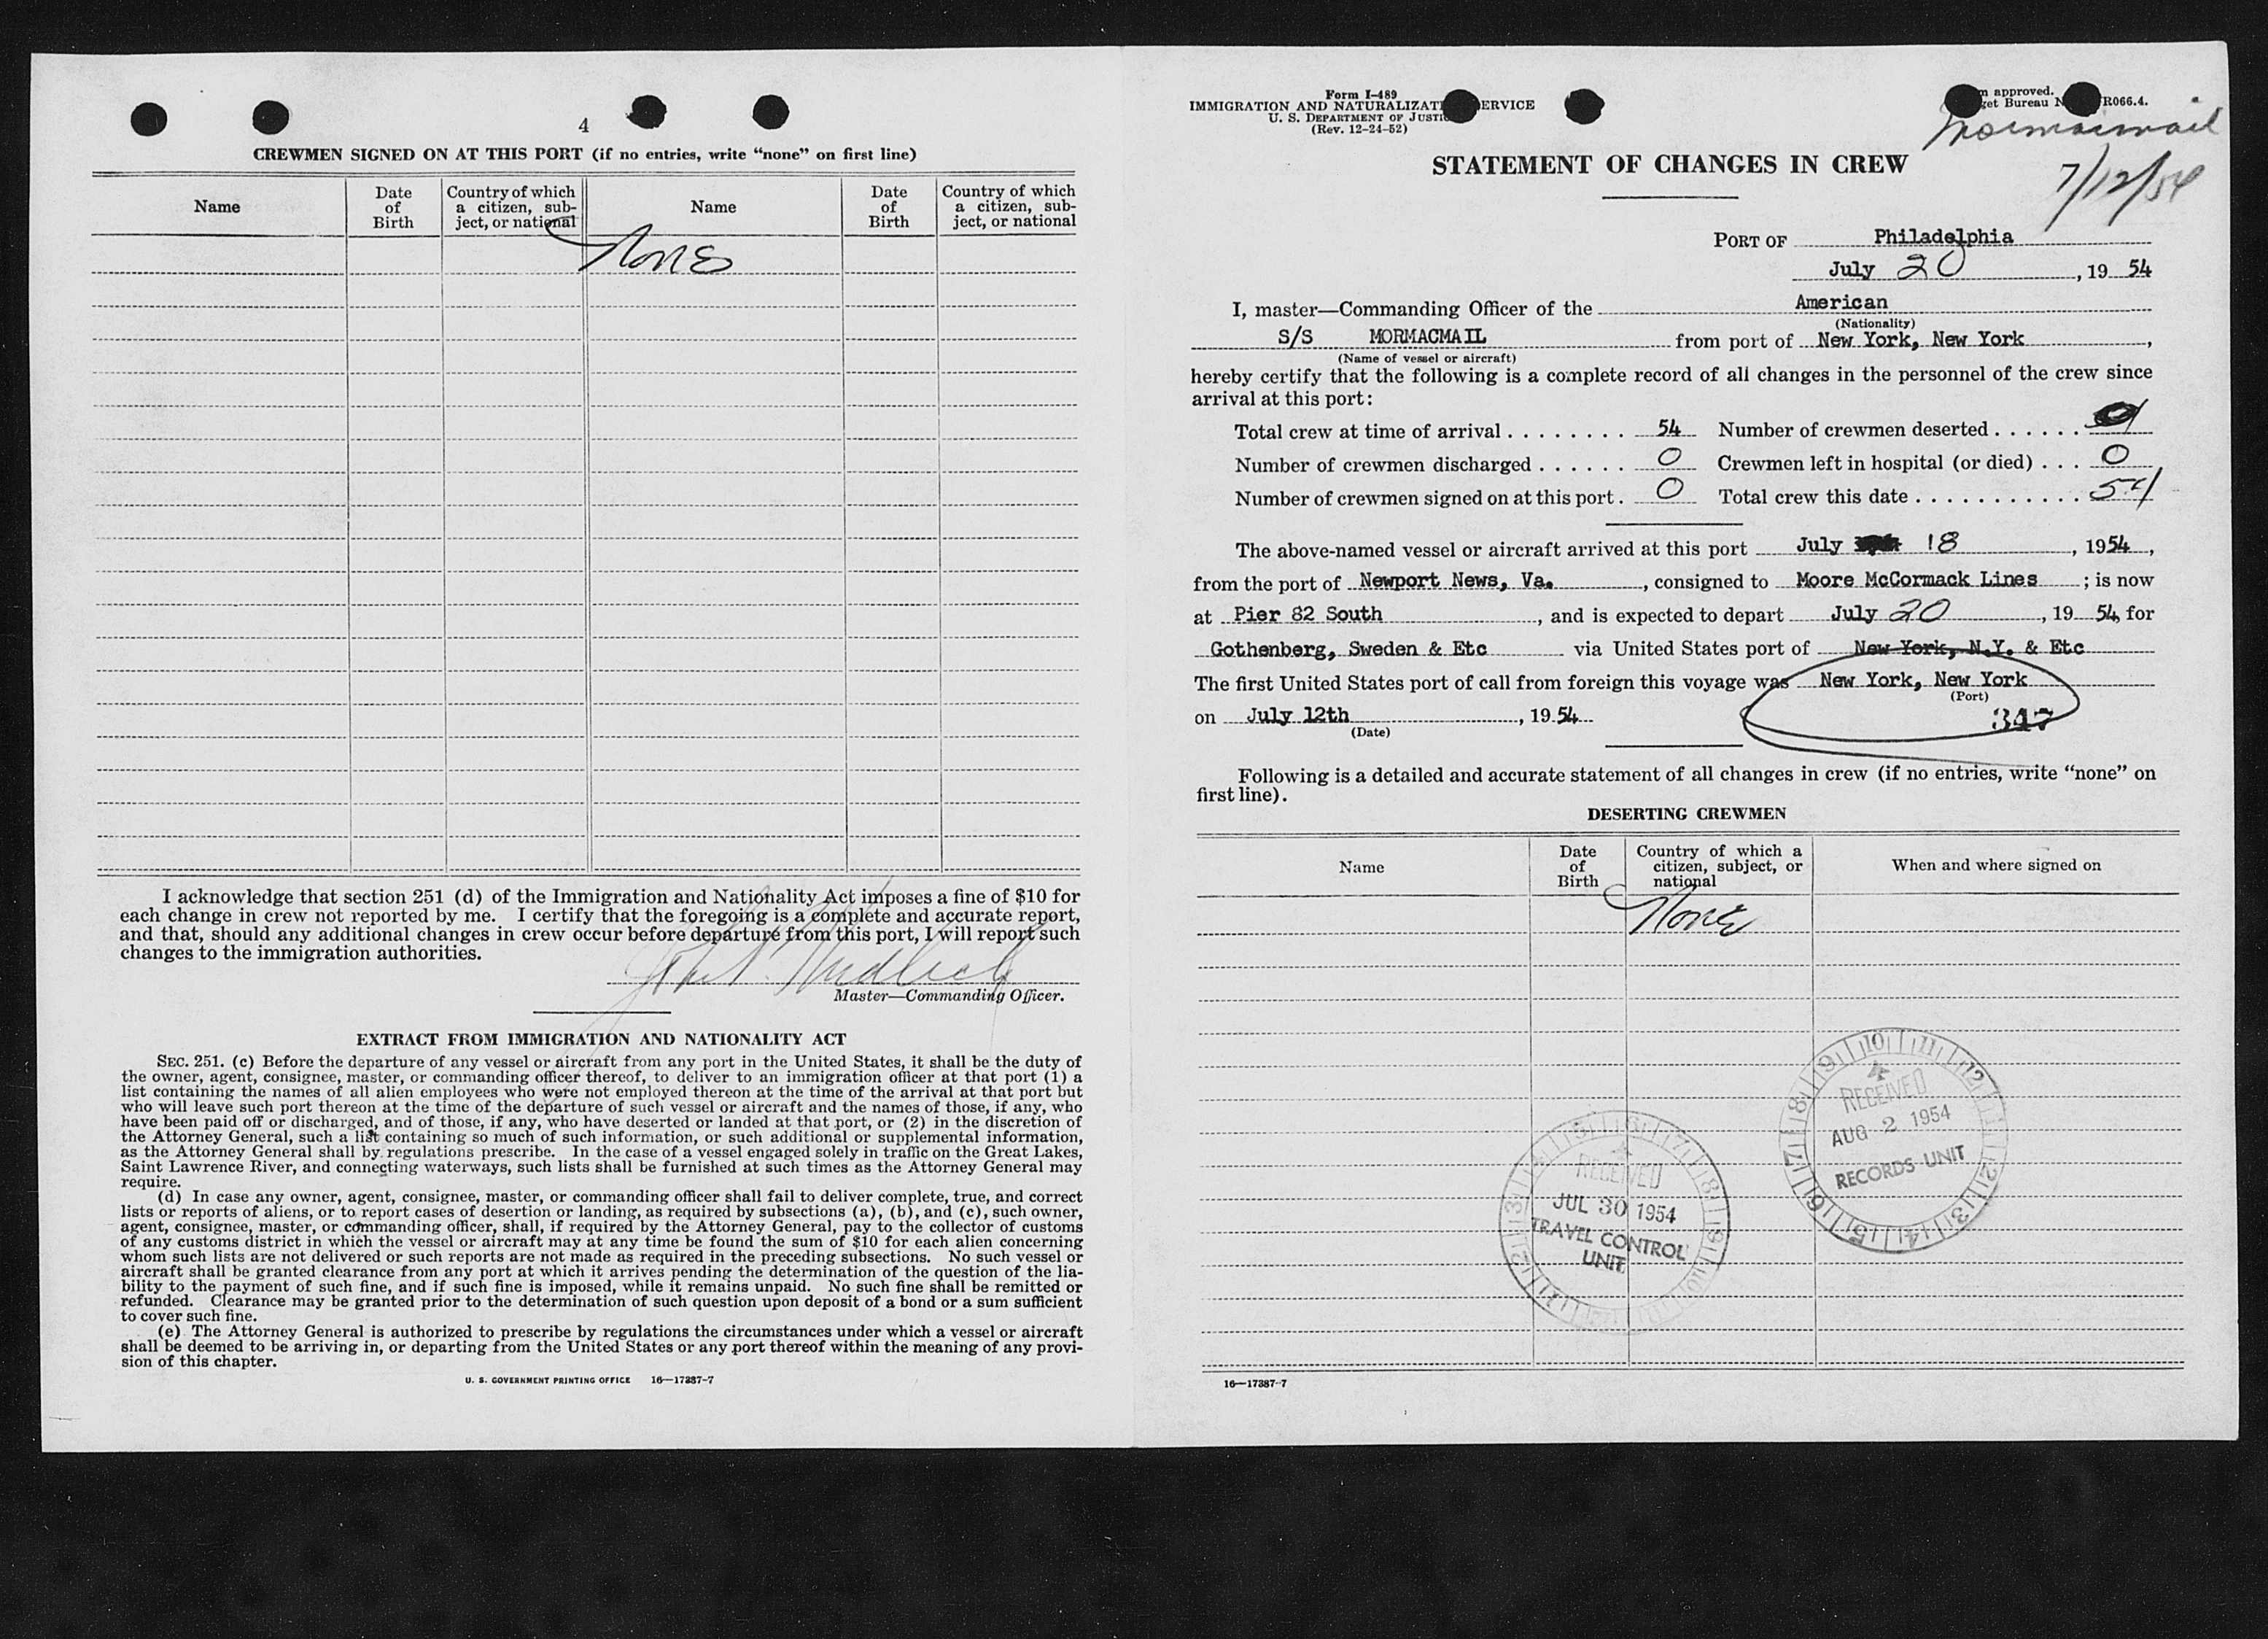 4
CREWMEN SIGNED ON AT THIS PORT (if no entries, write “none” on first line)
Name
Date of Birth
Country of which a citizen, subject, or national
Name
Date of Birth
Country of which a citizen, subject, or national
None
I acknowledge that section 251 (d) of the Immigration and Nationality Act imposes a fine of $10 for
each change in crew not reported by me. I certify that the foregoing is a complete and accurate report,
and that, should any additional changes in crew occur before departure from this port, I will report such
changes to the immigration authorities.
Master—Commanding Officer.
EXTRACT FROM IMMIGRATION AND NATIONALITY ACT
SEC. 251. (c) Before the departure of any vessel or aircraft from any port in the United States, it shall be the duty of
the owner, agent, consignee, master, or commanding officer thereof, to deliver to an immigration officer at that port (1) a
list containing the names of all alien employees who were not employed thereon at the time of the arrival at that port but
who will leave such port thereon at the time of the departure of such vessel or aircraft and the names of those, if any, who
have been paid off or discharged, and of those, if any, who have deserted or landed at that port, or (2) in the discretion of
the Attorney General, such a list containing so much of such information, or such additional or supplemental information,
as the Attorney General shall by regulations prescribe. In the case of a vessel engaged solely in traffic on the Great Lakes,
Saint Lawrence River, and connecting waterways, such lists shall be furnished at such times as the Attorney General may
require.
(d) In case any owner, agent, consignee, master, or commanding officer shall fail to deliver complete, true, and correct
lists or reports of aliens, or to report cases of desertion or landing, as required by subsections (a), (b), and (c), such owner,
agent, consignee, master, or commanding officer, shall, if required by the Attorney General, pay to the collector of customs
of any customs district in which the vessel or aircraft may at any time be found the sum of $10 for each alien concerning
whom such lists are not delivered or such reports are not made as required in the preceding subsections. No such vessel or
aircraft shall be granted clearance from any port at which it arrives pending the determination of the question of the lia-
bility to the payment of such fine, and if such fine is imposed, while it remains unpaid. No such fine shall be remitted or
refunded. Clearance may be granted prior to the determination of such question upon deposit of a bond or a sum sufficient
to cover such fine.
(e) The Attorney General is authorized to prescribe by regulations the circumstances under which a vessel or aircraft
shall be deemed to be arriving in, or departing from the United States or any port thereof within the meaning of any provi-
sion of this chapter.
U. S. GOVERNMENT PRINTING OFFICE 16—17387-7
Form I-489
IMMIGRATION AND NATURALIZATI ERVICE
U. S. DEPARTMENT OF JUSTI
(Rev. 12-24-52)
approved.
et Bureau N R066.4.
Mormacmail
7/12/54
STATEMENT OF CHANGES IN CREW
PORT OF Philadelphia
July 20, 19 54
I, master—Commanding Officer of the American
(Nationality)
S/S MORMACMAIL from port of New York, New York,
(Name of vessel or aircraft)
hereby certify that the following is a complete record of all changes in the personnel of the crew since
arrival at this port:
Total crew at time of arrival . . . . . . . . 54 Number of crewmen deserted . . . . . . 0
Number of crewmen discharged . . . . . . 0 Crewmen left in hospital (or died) . . . 0
Number of crewmen signed on at this port . 0 Total crew this date . . . . . . . . . . . . 54
The above-named vessel or aircraft arrived at this port July 18, 1954,
from the port of Newport News, Va., consigned to Moore McCormack Lines; is now
at Pier 82 South, and is expected to depart July 20, 19 54, for
Gothenberg, Sweden & Etc via United States port of New York, N.Y. & Etc
The first United States port of call from foreign this voyage was New York, New York
(Port)
on July 12th, 19 54
(Date)
347
Following is a detailed and accurate statement of all changes in crew (if no entries, write “none” on
first line).
DESERTING CREWMEN
Name
Date of Birth
Country of which a citizen, subject, or national
When and where signed on
None
RECEIVED
AUG 2 1954
RECORDS UNIT
RECEIVED
JUL 30 1954
TRAVEL CONTROL
UNIT
16—17387-7